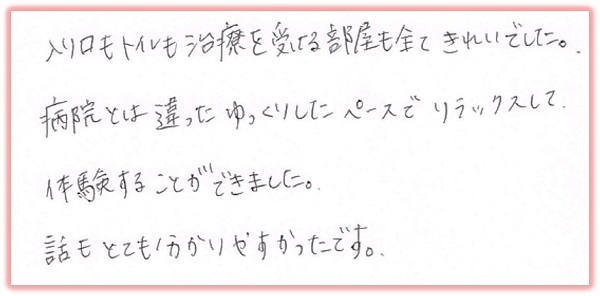 入り口もトイレも治療を受ける部屋も全てきれいでした。
病院とは違ったゆっくりしたペースでリラックスして
体験することができました。
話もとても分かりやすかったです。